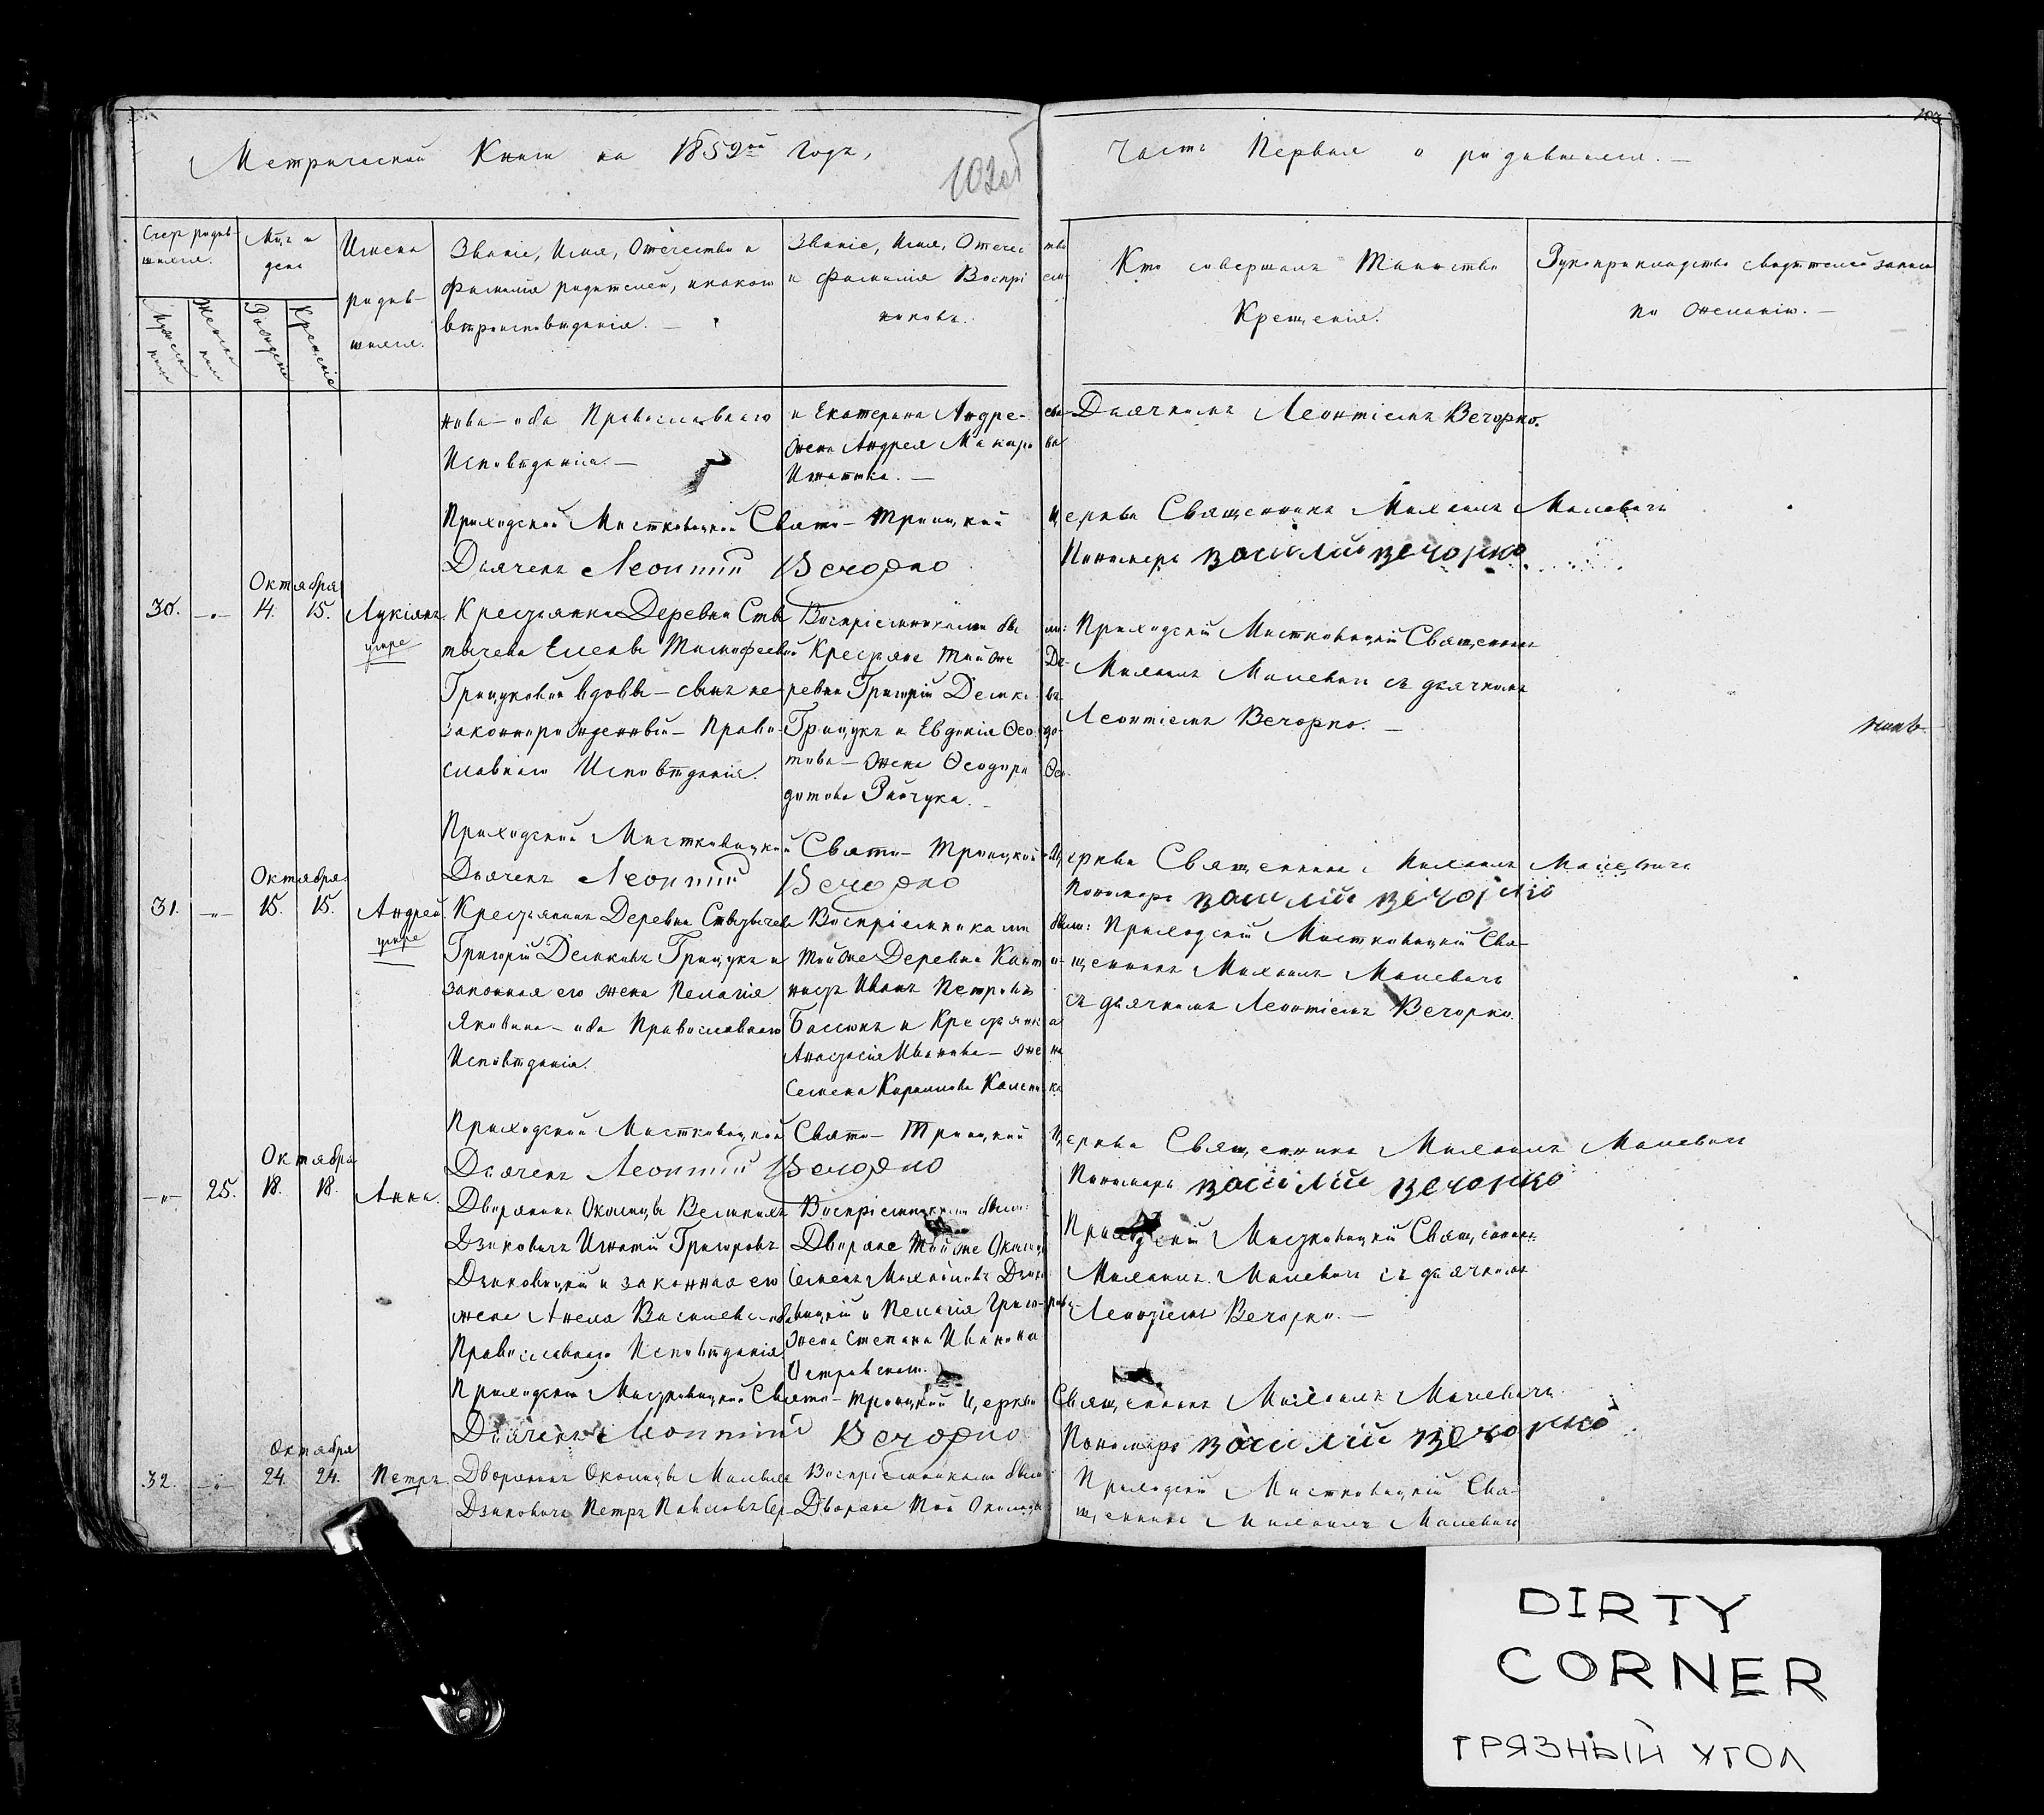 Метрической Книги на 1852ой Годъ,
102об
Часть Первая о родившихся. —
103
Счетъ родив-
шихся.
Мужеска
пола
Женска
пола
Мѣс. и
день
Рожденія
Крещенія
Имена
родив-
шихся.
Званіе, Имя, Отечество и
Фамилія родителей, и какого
вѣроисповѣданія. —
Званіе, Имя, Отечество
и Фамилія Воспріем-
никовъ.
Кто совершалъ Таинство
Крещенія.
Рукоприкладство свидѣтелей записи
по желанію. —
нова — оба Православнаго
Исповѣданія. —
и Екатерина Андреева
жена Андрея Макарова
Игнатика. —
Дьячкомъ Леонтіемъ Вечорко.
Приходской Мистковицкой Свято-Троицкой Церкви Священникъ Михаилъ Малевичъ
Дьячекъ Леонтій Вечорко Пономарь Василій Вечорко
Октября
30. —"— 14. 15. Лукіянъ.
умре
Крестьянки Деревни
Елены Тимофеевой
Грицуковой вдовы — сынъ не-
законнорожденный — Право-
славнаго Исповѣданія.
Воспріемниками были:
Крестьяне той же Де-
ревни Григорій Демковъ
Грицукъ и Евдокія Ѳео-до-
това — жена Ѳеодора Ѳео-
дотова Зайчука. —
Приходскій Мистковицкій Священникъ
Михаилъ Малевичъ съ дьячкомъ
Леонтіемъ Вечорко. —
Приходской Мистковицкой Свято-Троицкой Церкви Священникъ Михаилъ Малевичъ
Дьячекъ Леонтій Вечорко Пономарь Василій Вечорко
Октября
31. —"— 15. 15. Андрей.
умре
Крестьянинъ Деревни
Григорій Демковъ Грицукъ и
законная его жена Пелагія
Яковлева — оба Православнаго
Исповѣданія.
Воспріемниками были:
той же Деревни
Иванъ Петровъ
и Крестьянка
Анастасія Иванова — жена
Семена Карпова
Приходскій Мистковицкій Свя-
щенникъ Михаилъ Малевичъ
съ дьячкомъ Леонтіемъ Вечорко.
Приходской Мистковицкой Свято-Троицкой Церкви Священникъ Михаилъ Малевичъ
Дьячекъ Леонтій Вечорко Пономарь Василій Вечорко
Октября
—"— 25. 18. 18. Анна.
Дворянинъ Околицы Великихъ
Дзиковичъ Игнатій Григоровъ
Дзиковицкій и законная его
жена Анеля Василева
Православнаго Исповѣданія
Воспріемниками были:
Дворяне той же Околицы
Семенъ Михайловъ Дзико-
вицкій и Пелагія Григорова
жена Степана Иванова
Островскаго.
Приходскій Мистковицкій Священникъ
Михаилъ Малевичъ съ дьячкомъ
Леонтіемъ Вечорко. —
Приходской Мистковицкой Свято-Троицкой Церкви Священникъ Михаилъ Малевичъ
Дьячекъ Леонтій Вечорко Пономарь Василій Вечорко
Октября
32. —"— 24. 24. Петръ
Дворянинъ Околицы Малыхъ
Дзиковичъ Петръ Павловъ Сер-
Воспріемниками были
Дворяне той Околицы
Приходскій Мистковицкій Свя-
щенникъ Михаилъ Малевичъ
DIRTY
CORNER
ГРЯЗНЫЙ УГОЛ